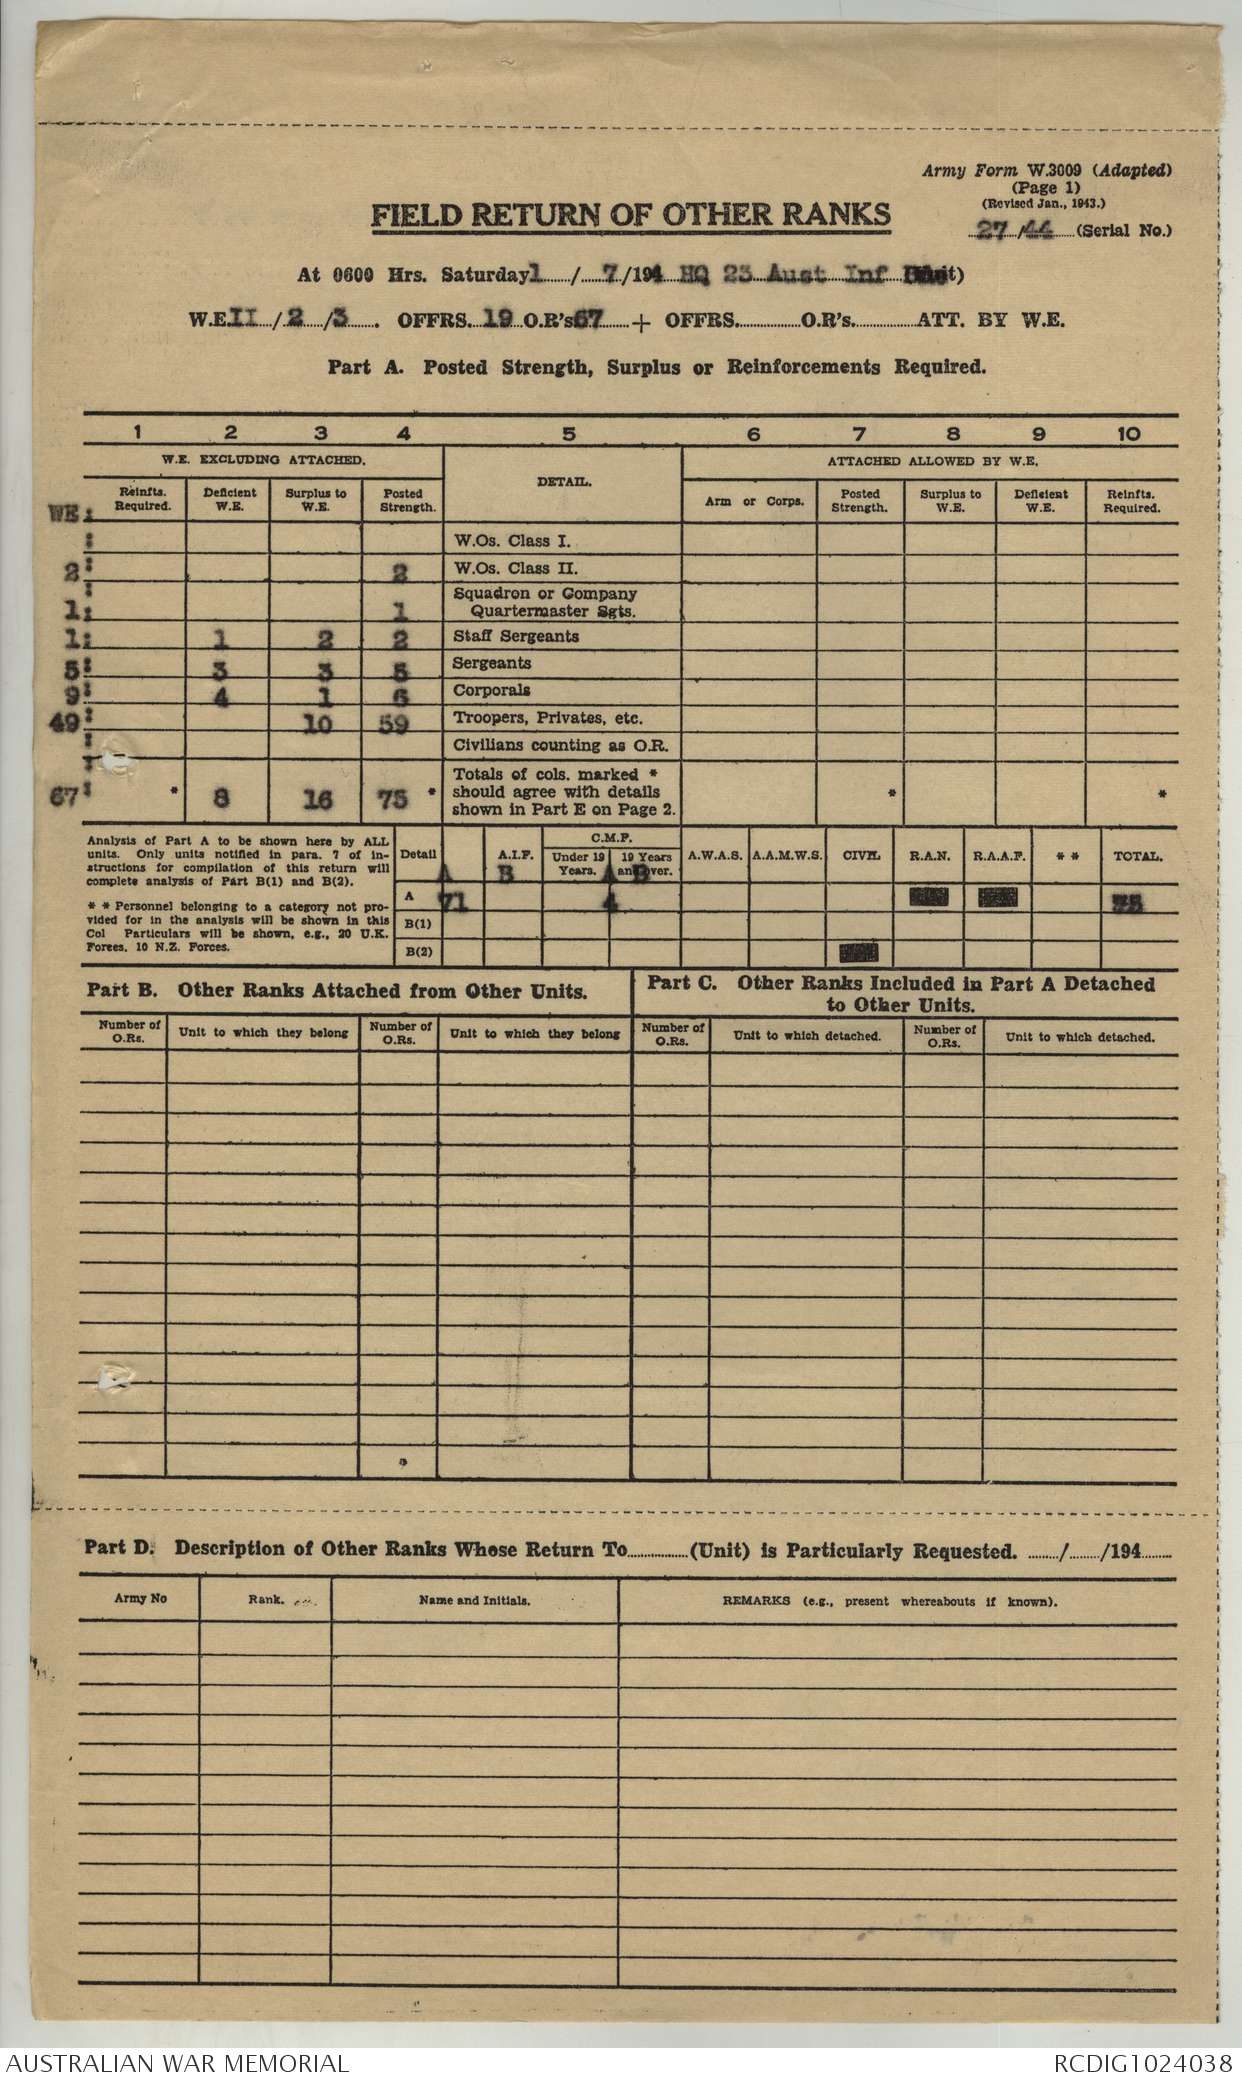 Army Form W.3009 (Adapted)
(Page 1)
(Revised Jan., 1943.)
FIELD RETURN OF OTHER RANKS
27/44 (Serial No.)
At 0600 Hrs. Saturday 1 / 7/194 HQ 23 Aust Inf
W.E. II / 2 /3 . OFFRS. 19 O.R's 67 + OFFRS. O.R's. ATT. BY W.E.
Part A. Posted Strength, Surplus or Reinforcements Required.
1 2 3 4 5 6 7 8 9 10
W.E. EXCLUDING ATTACHED. DETAIL. ATTACHED ALLOWED BY W.E.
WE: Reinfts. Required. Deficient W.E. Surplus to W.E. Posted Strength. Arm or Corps. Posted Strength. Surplus to W.E. Deficient W.E. Reinfts. Required.
: W.Os. Class I.
2: 2 W.Os. Class II.
1: 1 Squadron or Company Quartermaster Sgts.
1: 1 2 2 Staff Sergeants
5: 3 3 5 Sergeants
9: 4 1 6 Corporals
49: 10 59 Troopers, Privates, etc.
: Civilians counting as O.R.
67: * 8 16 75 * Totals of cols. marked * should agree with details shown in Part E on Page 2. * *
Analysis of Part A to be shown here by ALL
units. Only units notified in para. 7 of in-
structions for compilation of this return will
complete analysis of Part B(1) and B(2).
* * Personnel belonging to a category not pro-
vided for in the analysis will be shown in this
Col Particulars will be shown, e.g., 20 U.K.
Forces, 10 N.Z. Forces.
Detail A.I.F. C.M.F. Under 19 Years. 19 Years and over. A.W.A.S. A.A.M.W.S. CIVIL R.A.N. R.A.A.F. * * TOTAL.
A B A B
A 71 4 75
B(1)
B(2)
Part B. Other Ranks Attached from Other Units.
Number of O.Rs. Unit to which they belong Number of O.Rs. Unit to which they belong
Part C. Other Ranks Included in Part A Detached
to Other Units.
Number of O.Rs. Unit to which detached. Number of O.Rs. Unit to which detached.
Part D. Description of Other Ranks Whose Return To (Unit) is Particularly Requested. / /194
Army No Rank. Name and Initials. REMARKS (e.g., present whereabouts if known).
AUSTRALIAN WAR MEMORIAL RCDIG1024038